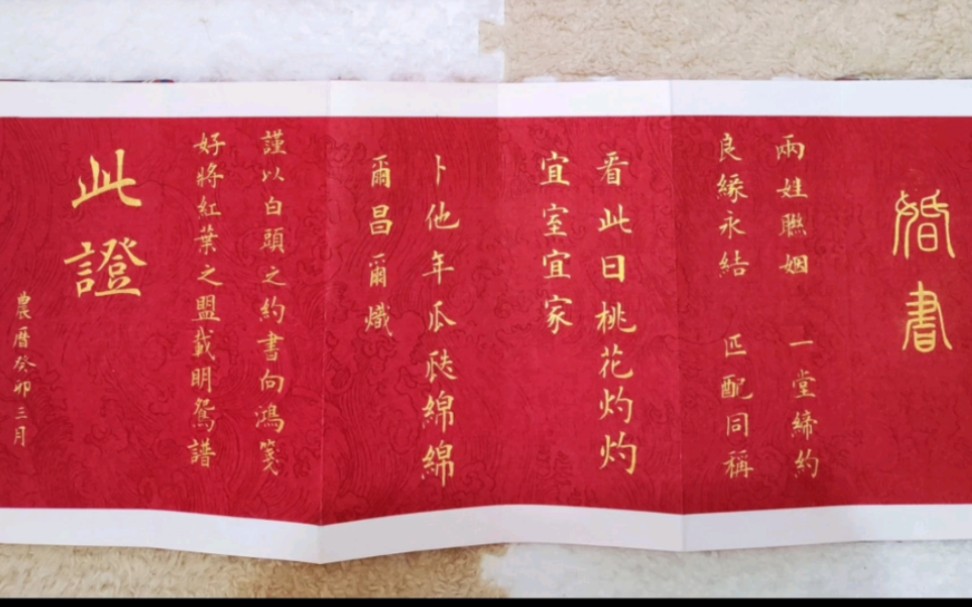 婚書
兩姓聯姻 一堂締約
良緣永結 匹配同稱
看此日桃花灼灼
宜室宜家
卜他年瓜瓞綿綿
爾昌爾熾
謹以白頭之約書向鴻箋
好將紅葉之盟載明鴛譜
此證
農曆癸卯三月